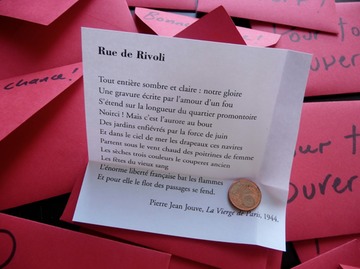 Rue de Rivoli
Tout entière sombre et claire : notre gloire
Une gravure écrite par l'amour d'un fou
S'étend sur la longueur du quartier promontoire
Noirci ! Mais c'est l'aurore au bout
Des jardins enfiévrés par la force de juin
Et dans le ciel de mer les drapeaux ces navires
Partent sous le vent chaud des poitrines de femme
Les sèches trois couleurs le couperet ancien
Les fêtes du vieux sang
L'énorme liberté française bat les flammes
Et pour elle le flot des passages se fend.
Pierre Jean Jouve, La Vierge de Paris, 1944.
chance !
Pour to
ouver